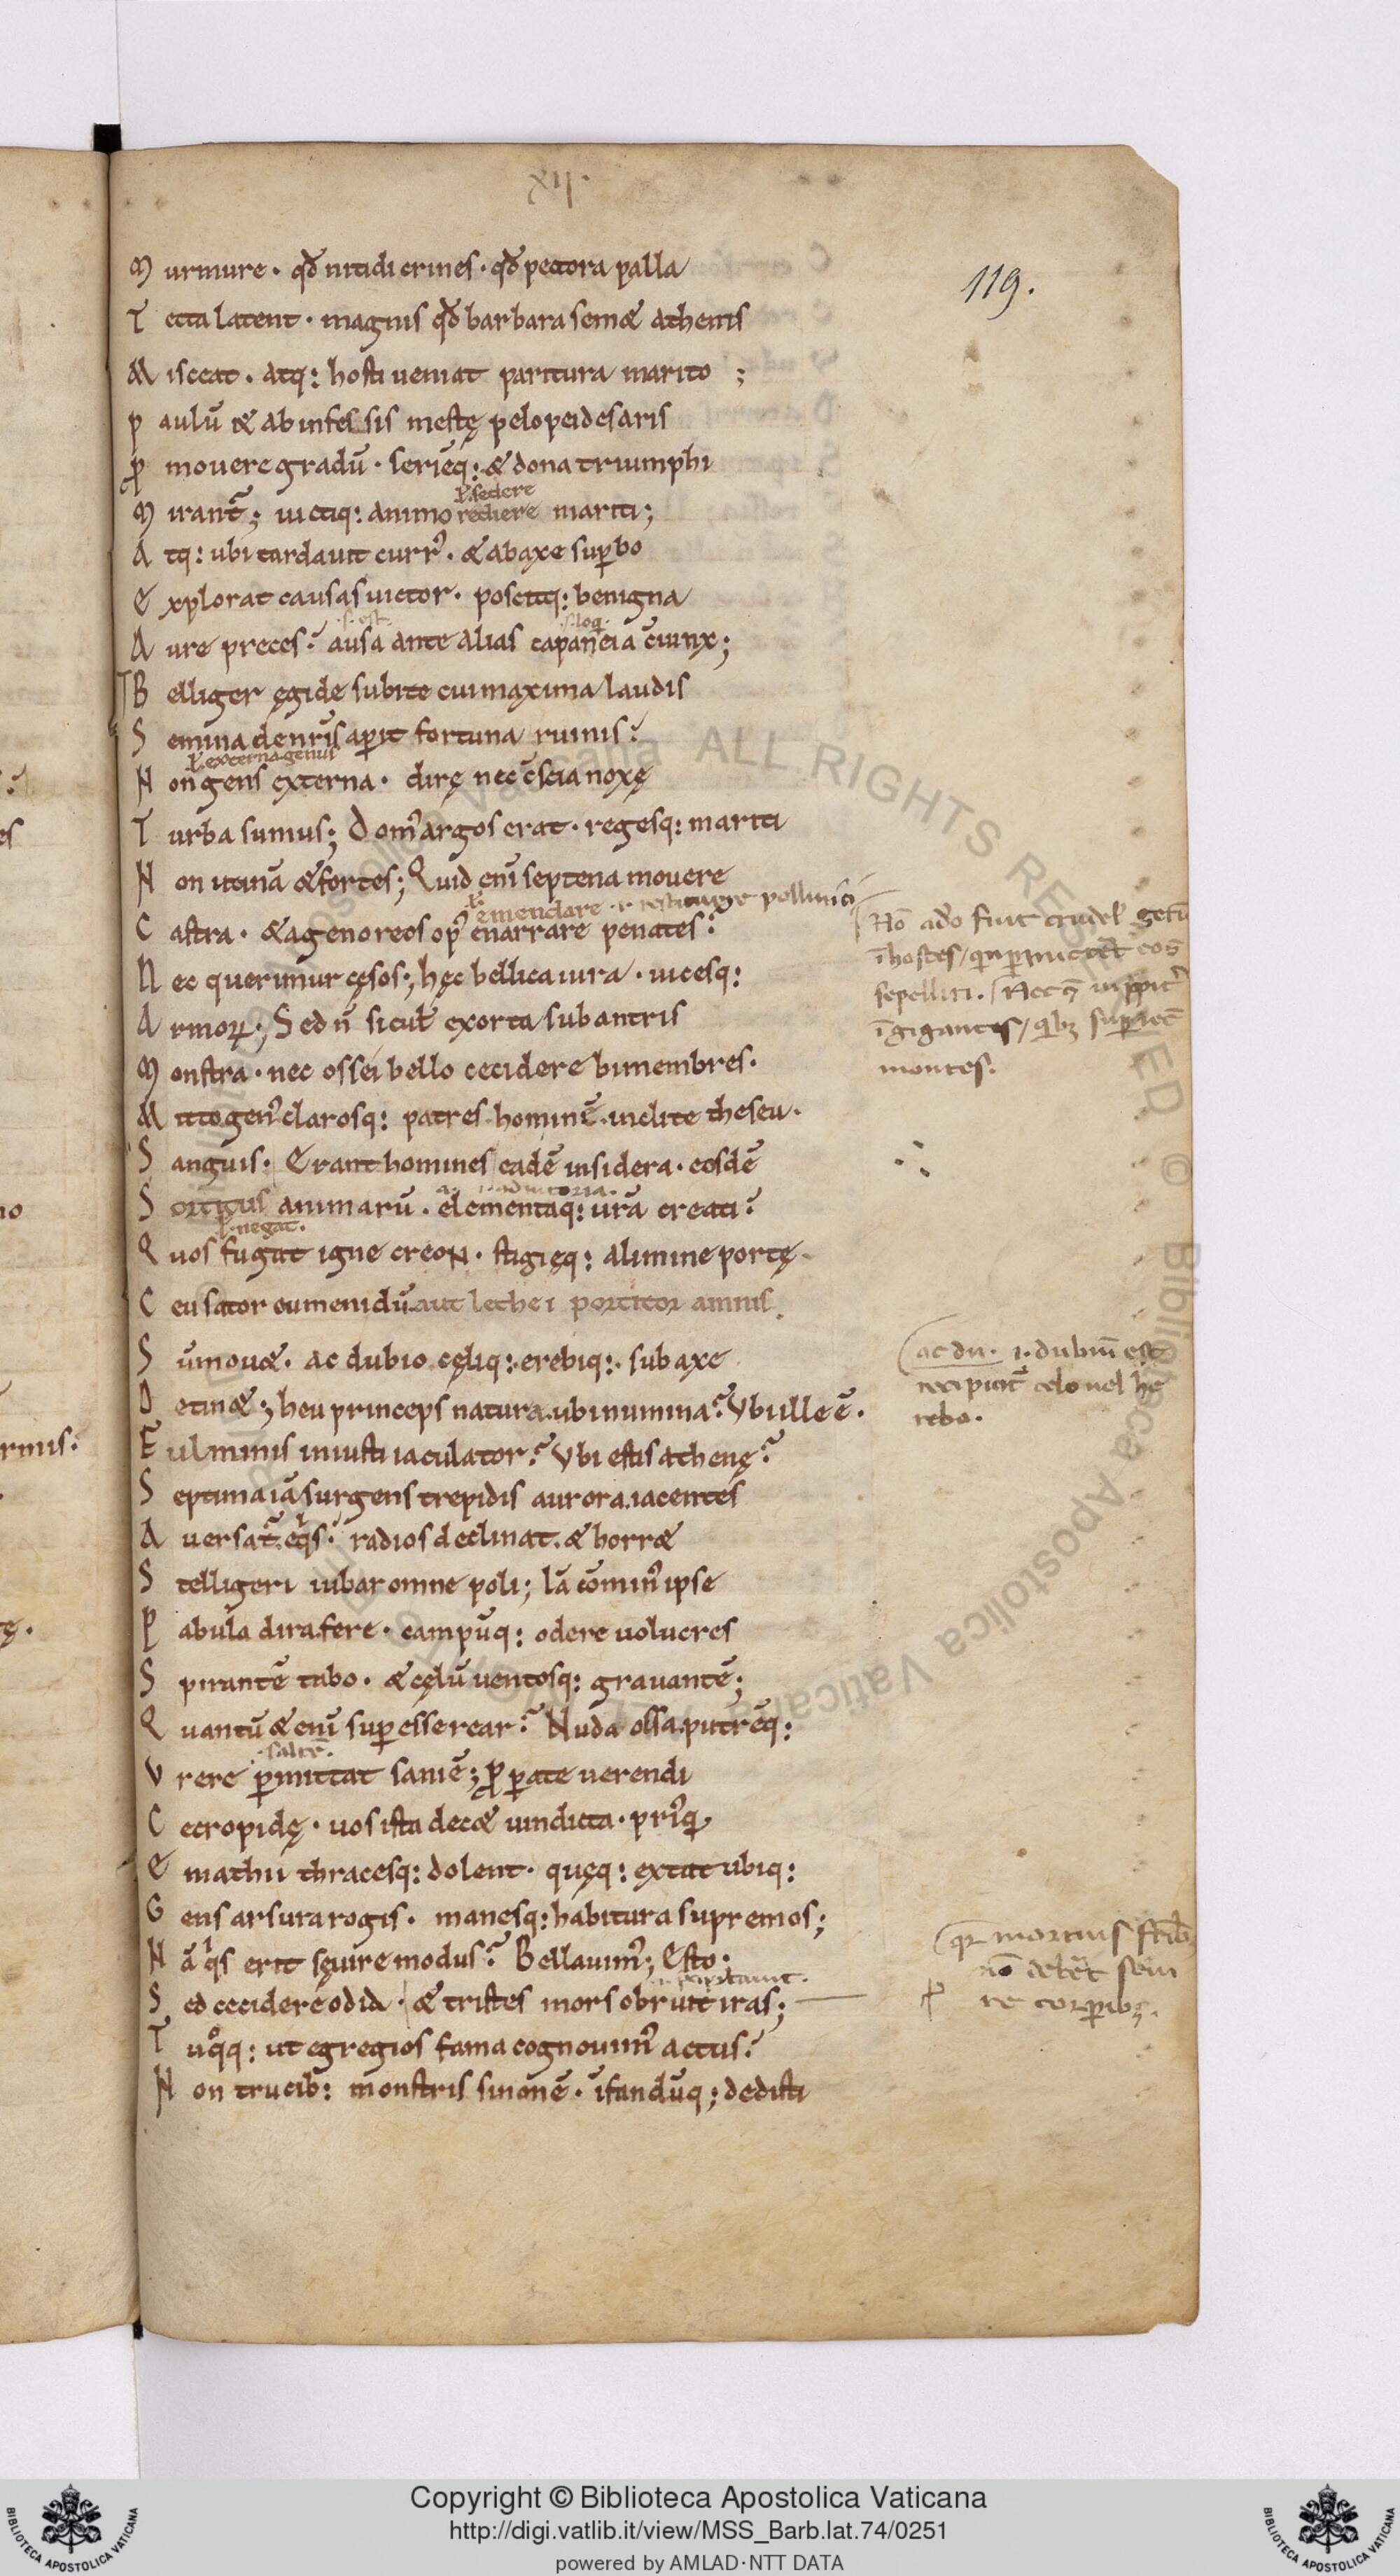 XII.
119.
M urmure · qđ nitidi crines · qđ pectora palla
T ecta latent · magnis qđ barbara semæ athenis
M isceat · atq: hosti ueniat paritura marito ;
P aulū & ab infessis mestę pelopeides aris
P̱ mouere gradū · seriēq: & dona triumphi
ł sedere
M irant᷑; uictiq: animo rediere mariti;
A tq: ubi tardauit curr᾽ · & ab axe sup̱bo
E xplorat causas uictor · poscitq: benigna
·s· est· ·s· loq̄·
A ure preces? ausa ante alias capaneia c̄iunx;
B elliger ęgide subite cui maxima laudis
S emina de nr̄is ap̱it fortuna ruinis?
ł externa genus
N on gens externa · dirę nec c̄scia noxę
T urba sumus; Dom᾽ argos erat · regesq: mariti
N on utinā & fortes; Quid enī septena mouere
ł emendare
C astra · & agenoreos op᾽ enarrare penates?
N ec querimur cęsos; hęc bellica iura · uicesq:
A rmoꝝ; Sed n̄ siculis exorta sub antris
M onstra · nec ossei bello cecidere bimembres·
M itto gen᾽ clarosq: patres · hominē · inclite theseu·
S anguis · Erant homines eadē in sidera · eosdē
S ortitus animarū · elementaq: urā creati?
ł negat·
Q uos fugat igne creon · stigięq: a limine portę·
C eu sator eumenidū aut lethei portitor amnis
S ūmouæ · ac dubio cęliq: erebiq: sub axe
D etinæ; heu princeps natura · ubi numina? Vbi ille ē·
F ulminis iniusti iaculator? Vbi estis athenę?
S eptima iā surgens trepidis aurora iacentes
A uersat᷑ eq̇s? radios declinat · & horræ
S telligeri iubar omne poli; Iā comin᾽ ipse
P abula dira fere · campūq: odere uolucres
S pirantē tabo · & cęlū uentosq: grauantē;
Q uantū & enī sup̱esse rear? Nuda ossa putrēq:
·saltē·
V rere p̱mittat saniē; P̱p̱ate uerendi
C ecropidę · uos ista decæ uindicta · pri᾽q̄
E mathii thracesq: dolent · quęq: extat ubiq:
G ens arsura rogis · manesq: habitura supremos;
N ā q̇s erit sęuire modus? Bellauim᾽; Esto·
S ed cecidere odia · & tristes mors obruit iras;
T uq̊q: ut egregios fama cognouim᾽ actus?
N on trucib: monstris sinonē · īfandūq; dedisti
Nō adō fuit crudel᾽
ī hostes / p̱mictet eos
sepelliri·
ī gigantes / qbȝ
montes·
ac du · i· dubiū est
recipiūt᷑ celo uel he
rebo·
mortuis
nō debet seui
re corp̱ibȝ·
Copyright © Biblioteca Apostolica Vaticana
http://digi.vatlib.it/view/MSS_Barb.lat.74/0251
powered by AMLAD·NTT DATA
BIBLIOTECA APOSTOLICA VATICANA
BIBLIOTECA APOSTOLICA VATICANA